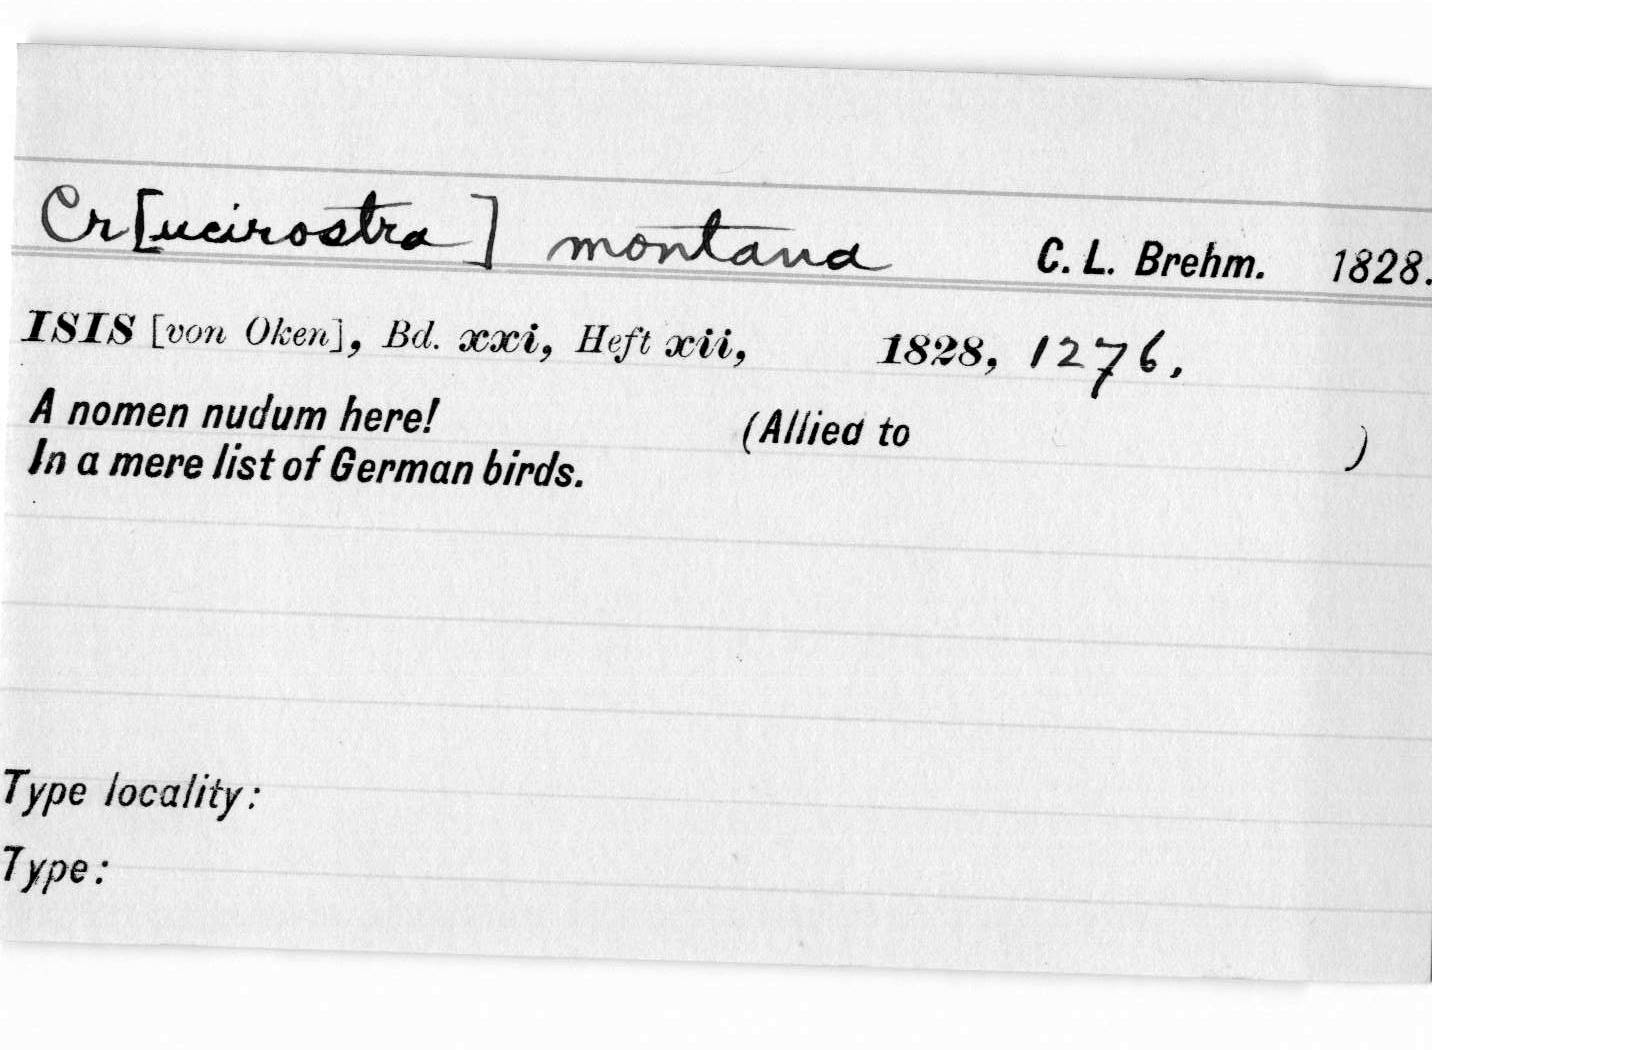 Cr[ucirostra] montana C. L. Brehm. 1828.
ISIS [von Oken], Bd. xxi, Heft xii, 1828, 1276.
A nomen nudum here! (Allied to )
In a mere list of German birds.
Type locality:
Type: